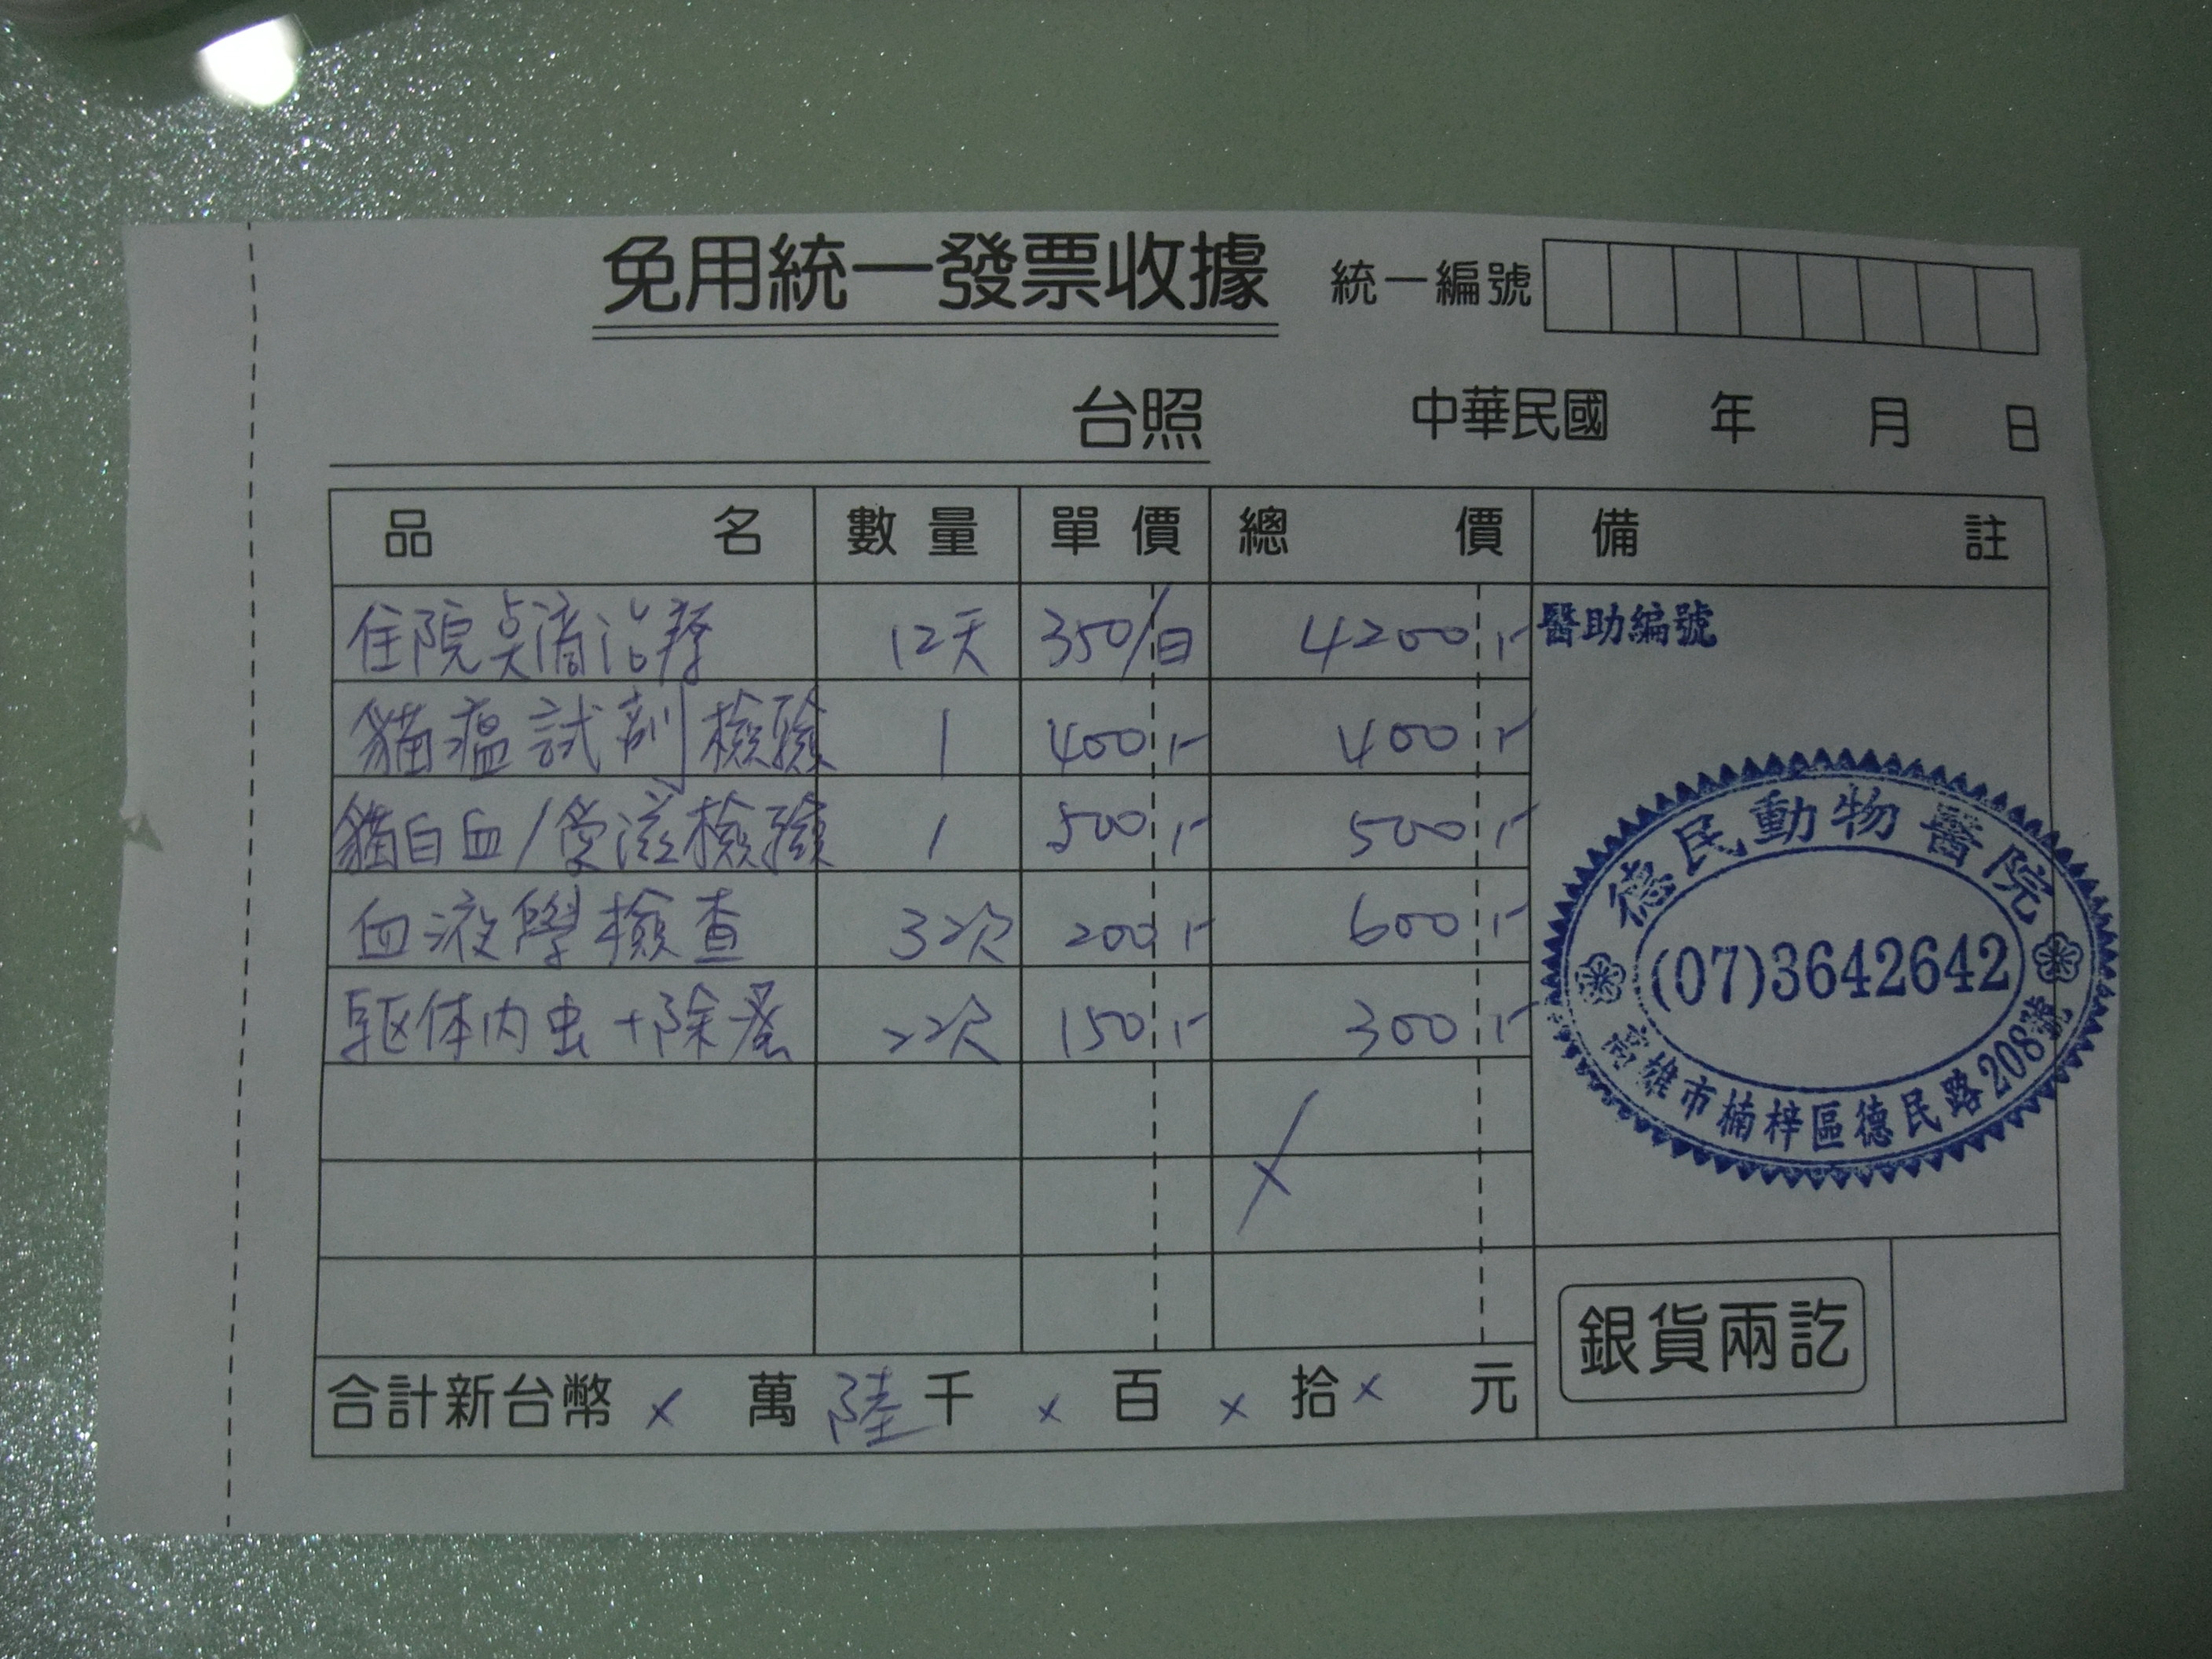 免用統一發票收據 統一編號
台照 中華民國 年 月 日
品名 數量 單價 總價 備註
住院点滴治療 12天 350/日 4200
醫助編號
貓瘟試劑檢驗 1 400 400
貓白血/愛滋檢驗 1 500 500
血液學檢查 3次 200 600
駆体内虫+除蚤 2次 150 300
德民動物醫院
(07)3642642
高雄市楠梓區德民路208號
合計新台幣 x 萬 陸 千 x 百 x 拾 x 元
銀貨兩訖